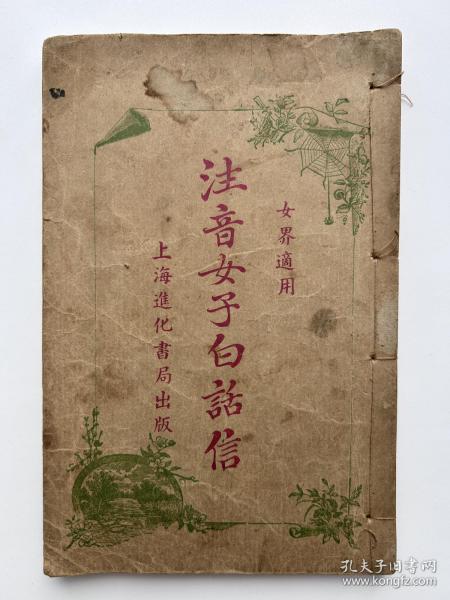 女界適用
注音女子白話信
上海進化書局出版
孔夫子旧书网
www.kongfz.com